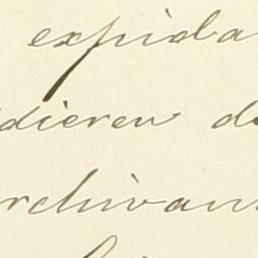 expida
dieren de
rchivan